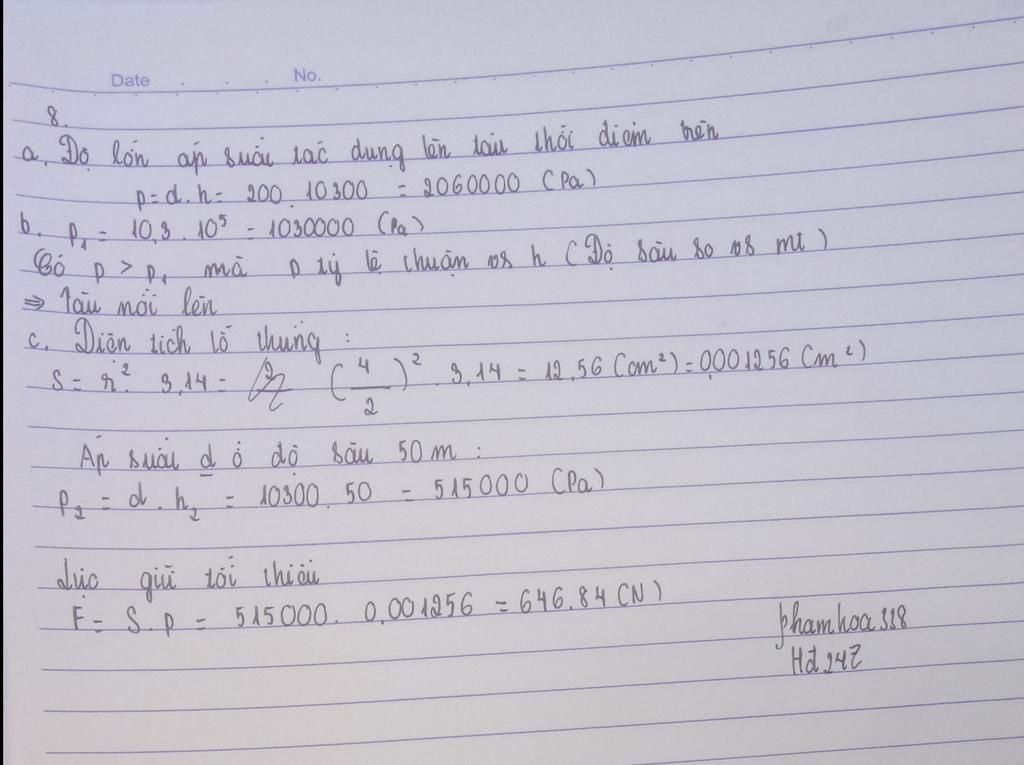 Date No.
8.
a. Độ lớn áp suất tác dụng lên tàu thời điểm trên
p = d.h = 200 . 10300 = 2060000 (Pa)
b. p₁ = 10,3 . 10⁵ = 1030000 (Pa)
Có p > p₁ mà p tỷ lệ thuận vs h (Độ sâu so vs mt)
⇒ Tàu nổi lên
c. Diện tích lỗ thủng :
S = r². 3,14 = (4/2)² . 3,14 = 12,56 (cm²) = 0,001256 (m²)
Áp suất d ở độ sâu 50 m :
p₂ = d . h₂ = 10300 . 50 = 515000 (Pa)
Lực giữ tối thiểu
F = S . p = 515000 . 0,001256 = 646,84 (N)
phamhoa318
Hđ247